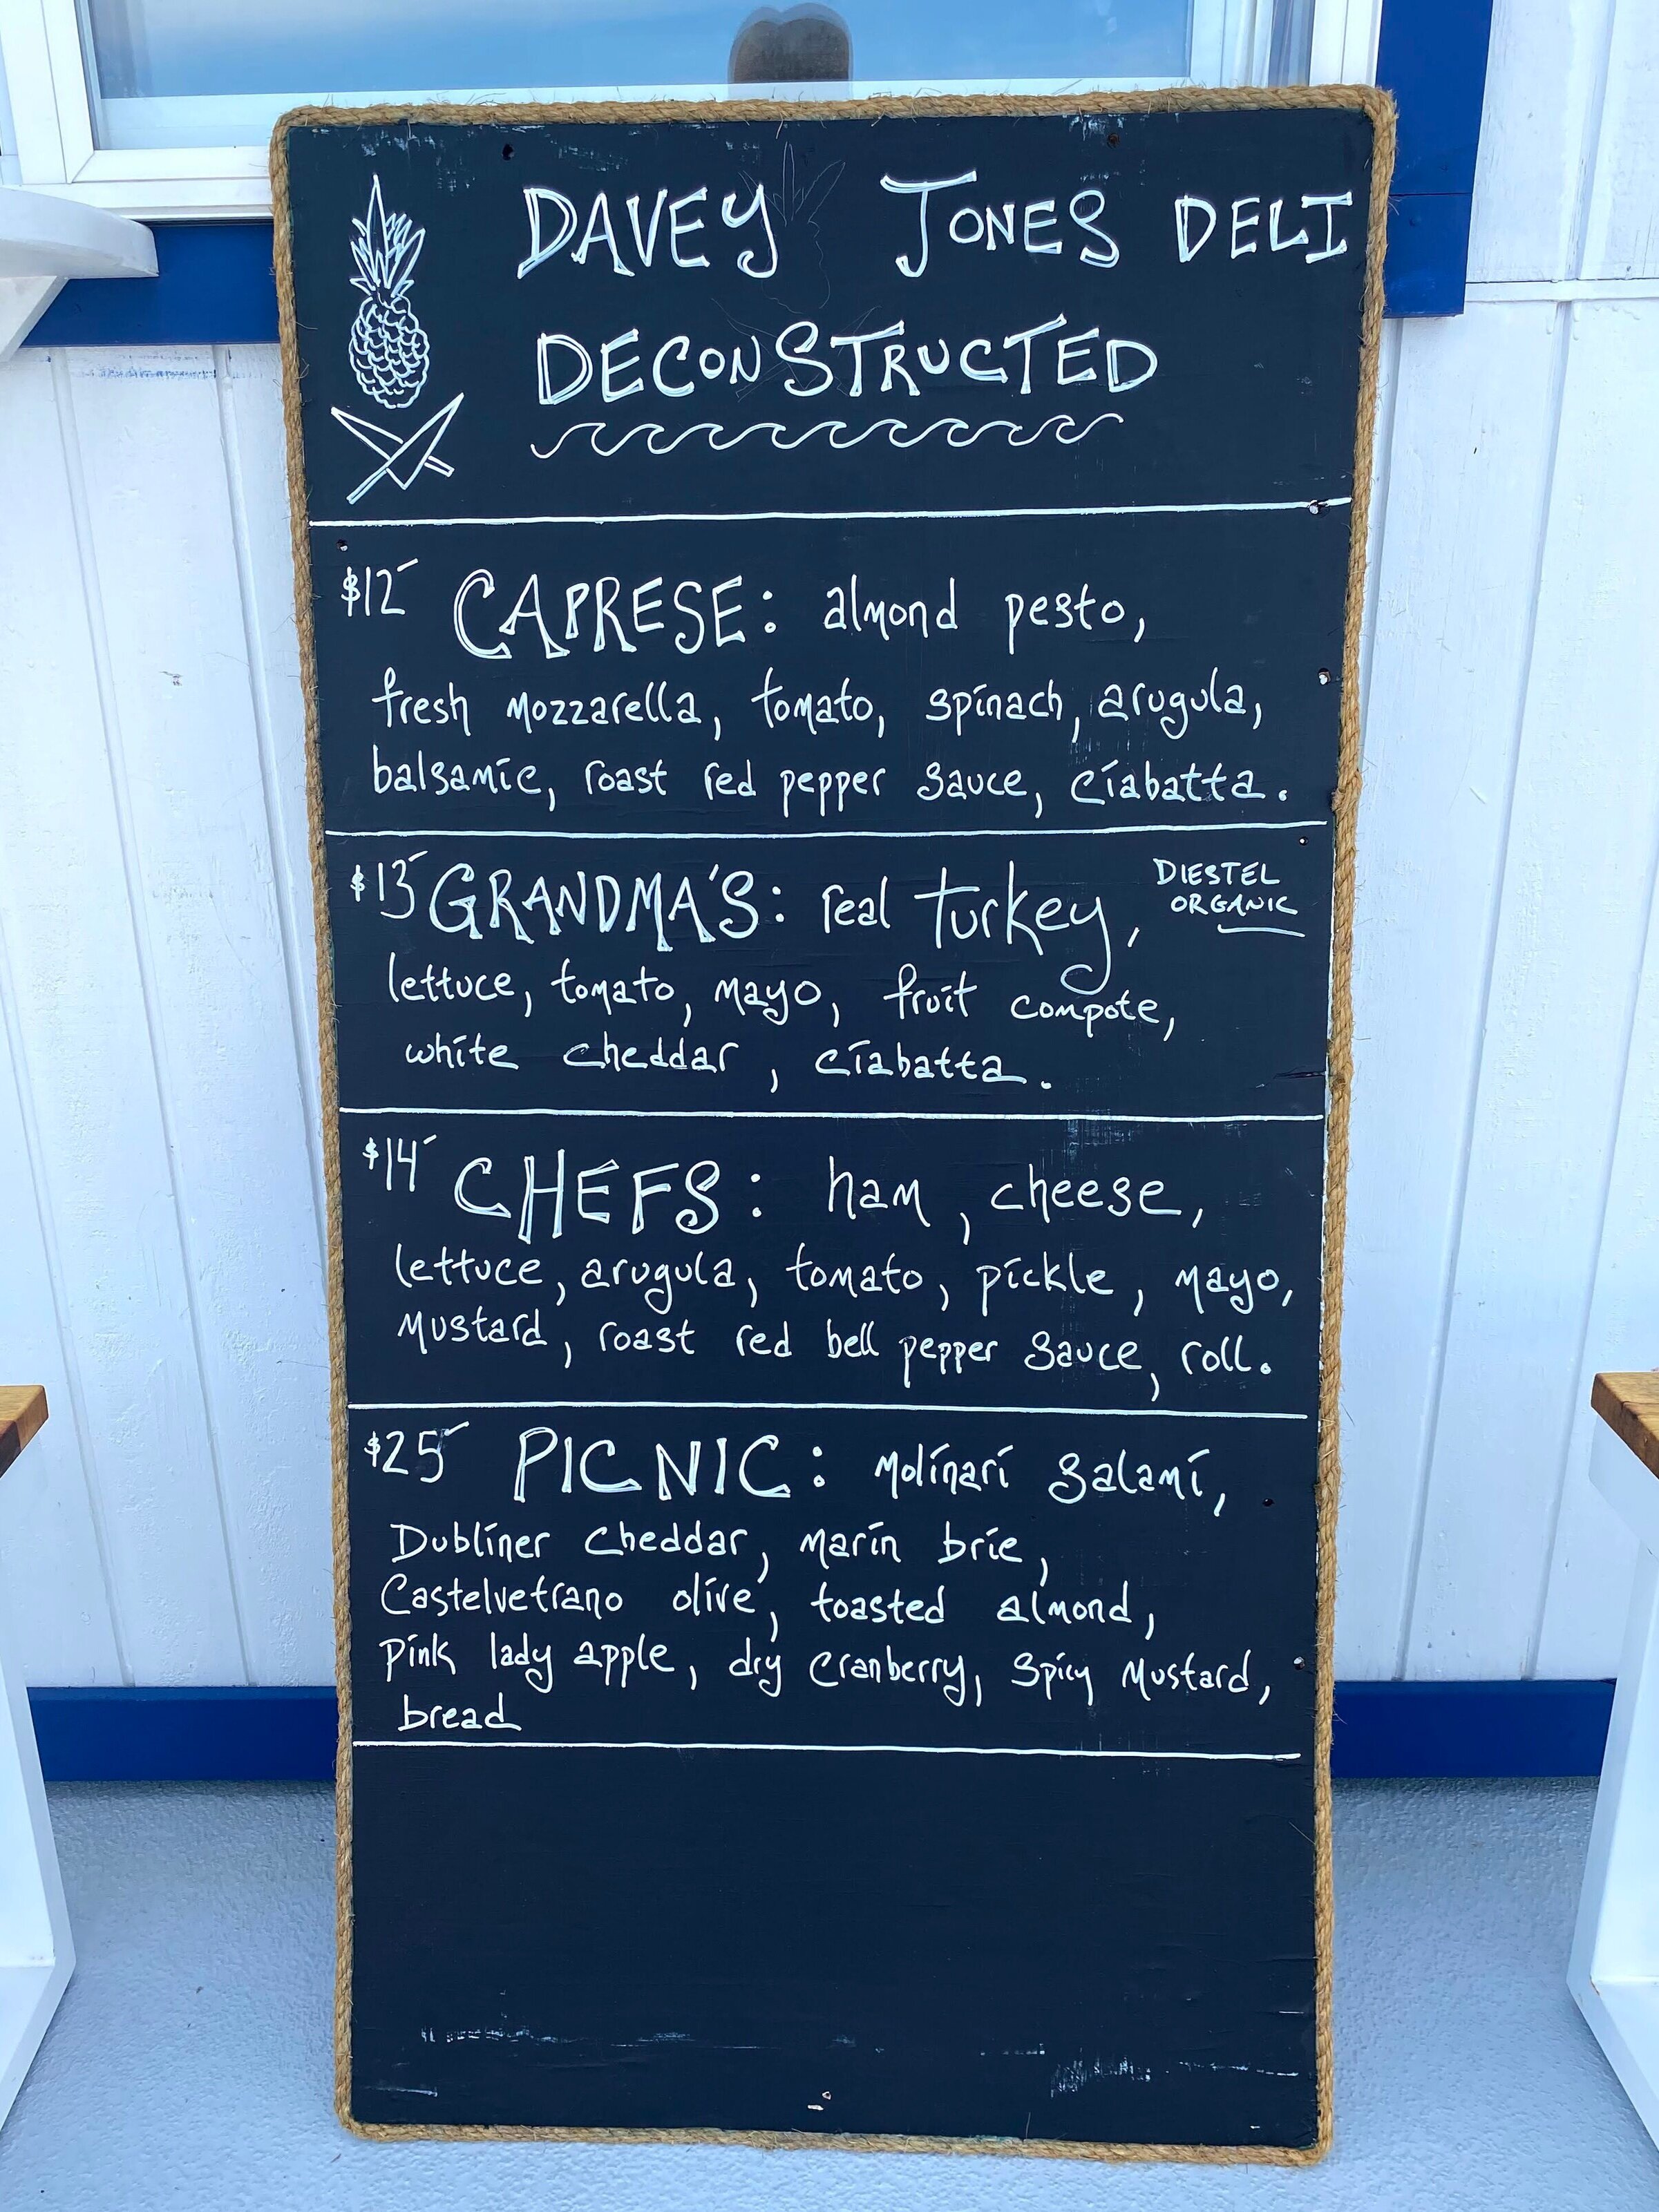 DAVEY JONES DELI
DECONSTRUCTED
$12 CAPRESE: almond pesto,
fresh mozzarella, tomato, spinach, arugula,
balsamic, roast red pepper sauce, ciabatta.
$13 GRANDMA'S: real turkey, DIESTEL
ORGANIC
lettuce, tomato, mayo, fruit compote,
white cheddar, ciabatta.
$14 CHEFS: ham, cheese,
lettuce, arugula, tomato, pickle, mayo,
mustard, roast red bell pepper sauce, roll.
$25 PICNIC: molinari salami,
Dubliner cheddar, marin brie,
Castelvetrano olive, toasted almond,
pink lady apple, dry cranberry, spicy mustard,
bread